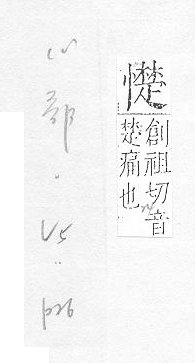 憷
創祖切音
楚痛也
心部.V5..p26